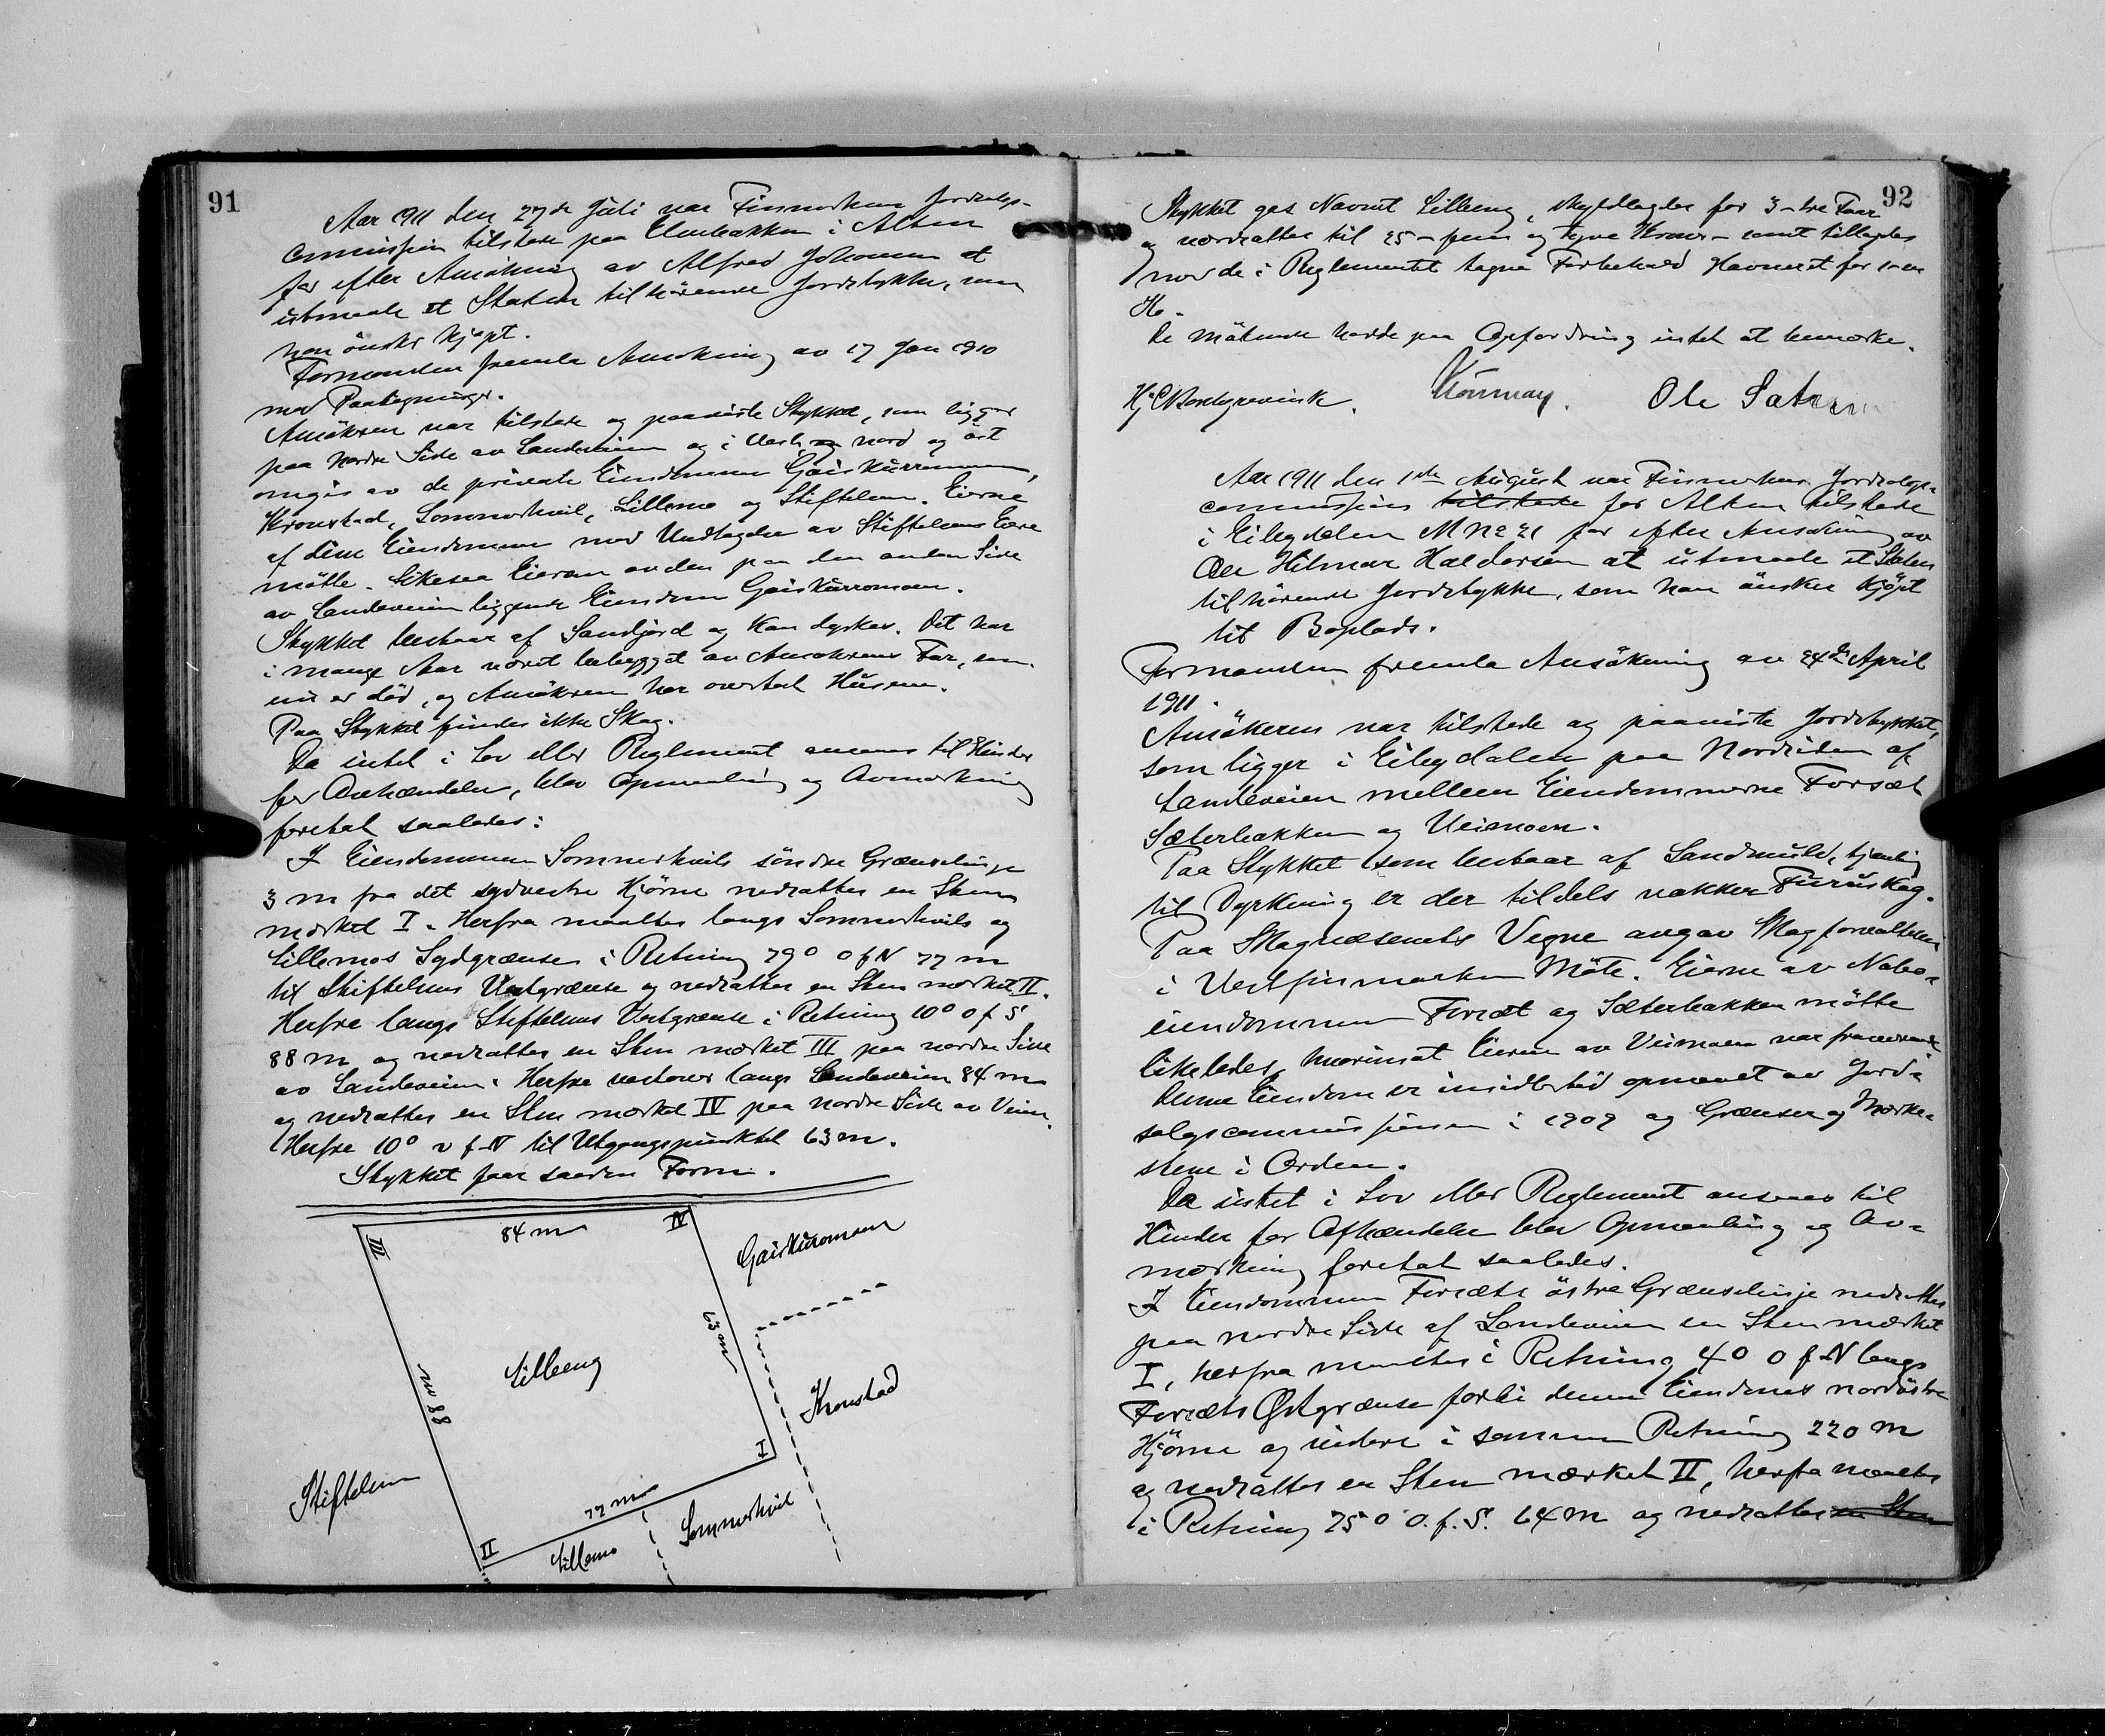 91
Aar 1911 den 27de Juli var Finmarkens Jordsalgs-
commission tilstede paa Elvebakken i Alten
for efter Ansökning av Alfred Johansen at
utmaale et Staten tilhörende Jordstykke, som
han önsker kjøpt.
Formanden fremla Ansökning av 17 Jan 1910
med Paategninger.
Ansökeren var tilstede og paaviste Stykket, som ligger
paa nordre Side av Landeveien og i Vest, og nord og öst
omgis av de private Eiendomme Gaiskurromoen,
Kronstad, Sommerhvil, Lillemo og Stiftelsen. Eierne
af disse Eiendomme med Undtagelse av Stiftelsens Eiere
mötte. Likesaa Eieren av den paa den anden Side
av Landeveien liggende Eiendom Gaiskurromoen.
Stykket bestaar af Sandjord og kan dyrkes. Det har
i mange Aar været bebygget av Ansökerens Far, som
nu er död, og Ansökeren har overtat Husene.
Paa Stykket findes ikke Skog.
Da intet i Lov eller Reglement ansees til Hinder
for Avhændelse, blev Opmaaling og Avmerkning
foretat saaledes:
I Eiendommen Sommerhvils söndre Grænselinje
3 m fra det sydvestre Hjörne nedsattes en Sten
mærket I. Herfra maaltes langs Sommerhvils og
Lillemos Sydgrænse i Retning 79° O f N 77 m
til Stiftelsens Vestgrænse og nedsattes en Sten mærket II.
Herfra langs Stiftelsens Vestgrænse i Retning 10° O f S
88 m og nedsattes en Sten mærket III paa nordre Side
av Landeveien. Herfra vestover langs Landeveien 84 m
og nedsattes en Sten mærket IV paa nordre Side av Veien.
Herfra 10° v f N til Utgangspunktet 63 m.
Stykket faar saadan Form.
III 84 m IV
Gaiskuromoen
63 m
88 m
Lilleeng
Kronstad
I
Stiftelsen
77 m
Sommerhvil
II
Lillemo
92
Stykket gas Navnet Lilleeng, skyldlagdes for 3 - tre Øre
og værdsattes til 25 - fem og tyve Kroner - samt tillagdes
med de i Reglementet tagne Forbehold Havneret for 1 - en
Ko.
De mötende hadde paa Opfordring intet at bemærke.
Hj. C. Borchgrevink. Ole Sæther
Aar 1911 den 1ste August var Finmarkens Jordsalgs-
commission tilstede for Alten tilstede
i Eibydalen M No 21 for efter Ansökning av
Ole Hilmar Haldorsen at utmaale et Staten
tilhörende Jordstykke, som han önsker kjöpt
til Boplads.
Formanden fremla Ansökning av 24de April
1911.
Ansökeren var tilstede og paaviste Jordstykket,
som ligger i Eibydalen paa Nordsiden af
Landeveien mellem Eiendommerne Forsæt
Sæterbakken og Veimoen.
Paa Stykket som bestaar af Sandmuld, tjenlig
til Dyrkning er der tildels vakker Furuskog.
Paa Skogvæsenets Vegne avgav Skogforvalteren
i Vestfinmarken Möte. Eierne av Nabo-
eiendommen Forsæt og Sæterbakken mötte
likeledes, hvorimot Eieren av Veimoen var fraværende
Denne Eiendom er imidlertid opmaalt av Jord-
salgscommissionen i 1909 og Grænser og Mærke-
stene i Orden.
Da intet i Lov eller Reglement ansees til
Hinder for Afhændelse blev Opmaaling og Av-
mærkning foretat saaledes.
I Eiendommen Forsæts östre Grænselinje nedsattes
paa nordre Side af Landeveien en Sten mærket
I, herfra maaltes i Retning 4° O f N langs
Forsæts Østgrænse forbi denne Eiendoms nordöstre
Hjörne og videre i samme Retning 220 m
og nedsattes en Sten mærket II, herfra maaltes
i Retning 75° O. f. S. 64 m og nedsattes en Sten